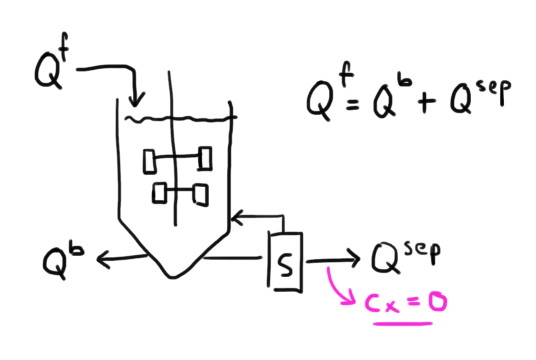 Q^f
Q^f = Q^b + Q^sep
Q^b
S
Q^sep
Cx = 0